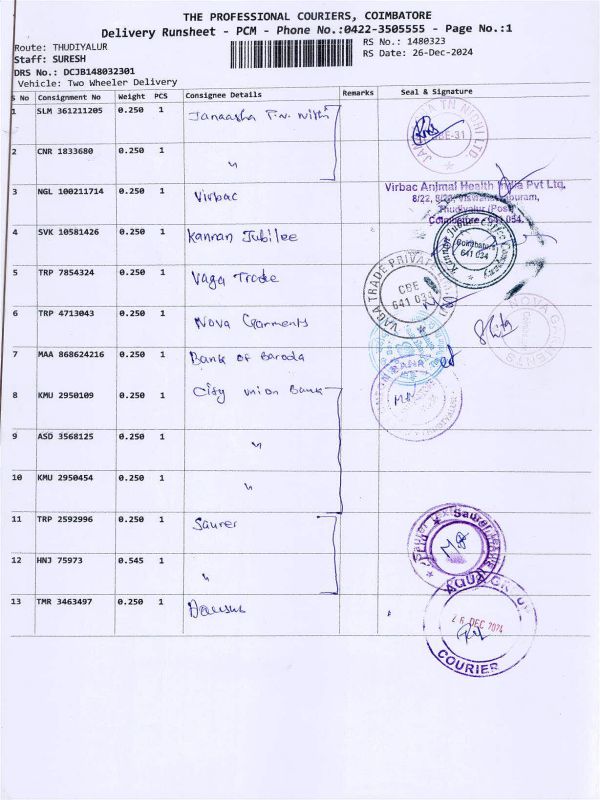 THE PROFESSIONAL COURIERS, COIMBATORE
Delivery Runsheet - PCM - Phone No.:0422-3505555 - Page No.:1
Route: THUDIYALUR
RS No.: 1480323
Staff: SURESH
RS Date: 26-Dec-2024
DRS No.: DCJB148032301
Vehicle: Two Wheeler Delivery
S No Consignment No Weight PCS Consignee Details Remarks Seal & Signature
1 SLM 361211205 0.250 1 Janaasha T.N. Nithi
2 CNR 1833680 0.250 1 "
3 NGL 100211714 0.250 1 Virbac
4 SVK 10581426 0.250 1 Kannan Jubilee
5 TRP 7854324 0.250 1 Vaga Trade
6 TRP 4713043 0.250 1 Nova Garments
7 MAA 868624216 0.250 1 Bank of Baroda
8 KMU 2950109 0.250 1 City union Bank
9 ASD 3568125 0.250 1 "
10 KMU 2950454 0.250 1 "
11 TRP 2592996 0.250 1 Saurer
12 HNJ 75973 0.545 1 "
13 TMR 3463497 0.250 1
CBE-31
Virbac Animal Health India Pvt Ltd.
Thudiyalur (Post)
Coimbatore - 641 034.
Kannan Jubilee Coffee Company
Coimbatore
641 034
VAGA TRADE PRIVATE
CBE
641 034
NOVA GARMENTS
Saurer
AQUA GROUP
26 DEC 2024
COURIER